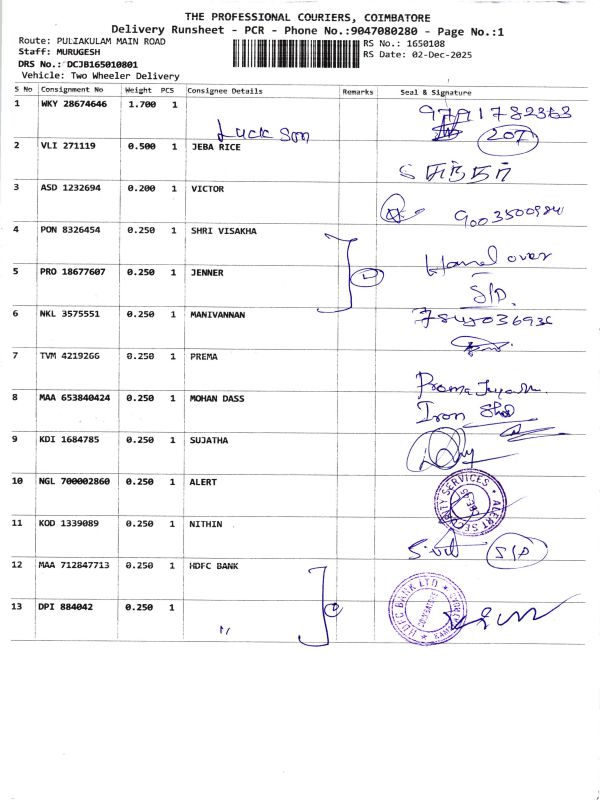 THE PROFESSIONAL COURIERS, COIMBATORE
Delivery Runsheet - PCR - Phone No.:9047080280 - Page No.:1
Route: PULIAKULAM MAIN ROAD
RS No.: 1650108
Staff: MURUGESH
RS Date: 02-Dec-2025
DRS No.: DCJB165010801
Vehicle: Two Wheeler Delivery
S No Consignment No Weight PCS Consignee Details Remarks Seal & Signature
1 WKY 28674646 1.700 1 9791782363
Luck Son 207
2 VLI 271119 0.500 1 JEBA RICE
3 ASD 1232694 0.200 1 VICTOR
4 PON 8326454 0.250 1 SHRI VISAKHA
Hand over
5 PRO 18677607 0.250 1 JENNER
S/D.
6 NKL 3575551 0.250 1 MANIVANNAN
7 TVM 4219266 0.250 1 PREMA
8 MAA 653840424 0.250 1 MOHAN DASS
Iron
9 KDI 1684785 0.250 1 SUJATHA
10 NGL 700002860 0.250 1 ALERT ALERT SECURITY SERVICES
11 KOD 1339089 0.250 1 NITHIN
S/D
12 MAA 712847713 0.250 1 HDFC BANK HDFC BANK LTD
COIMBATORE
13 DPI 884042 0.250 1
"